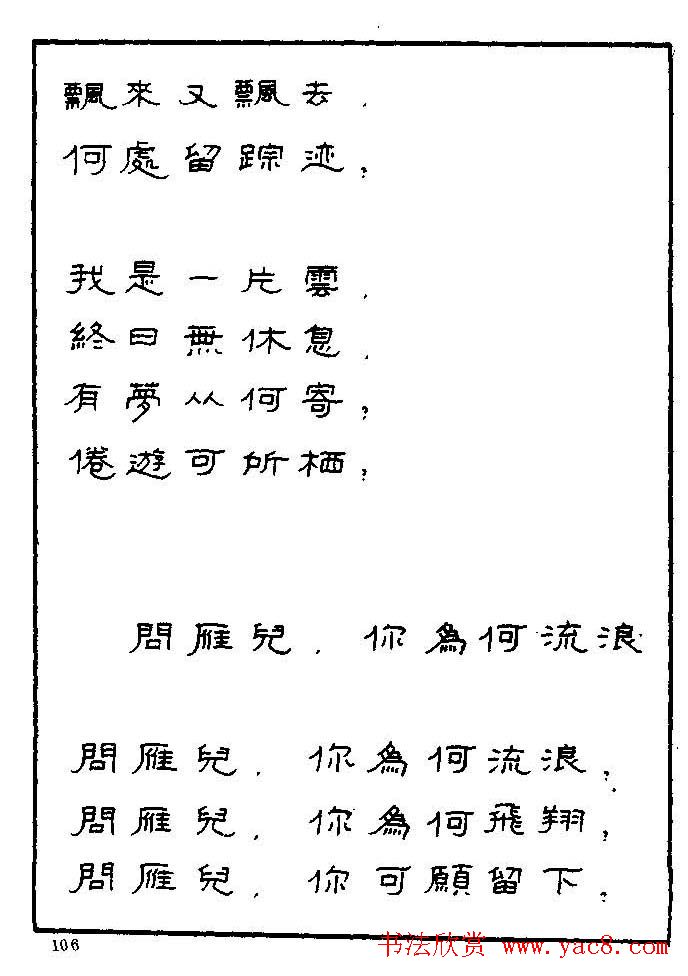 飄來又飄去，
何處留踪迹？
我是一片雲，
終日無休息，
有夢从何寄？
倦遊可所栖？
問雁兒，你為何流浪
問雁兒，你為何流浪？
問雁兒，你為何飛翔？
問雁兒，你可願留下？
106
书法欣赏 www.yac8.com